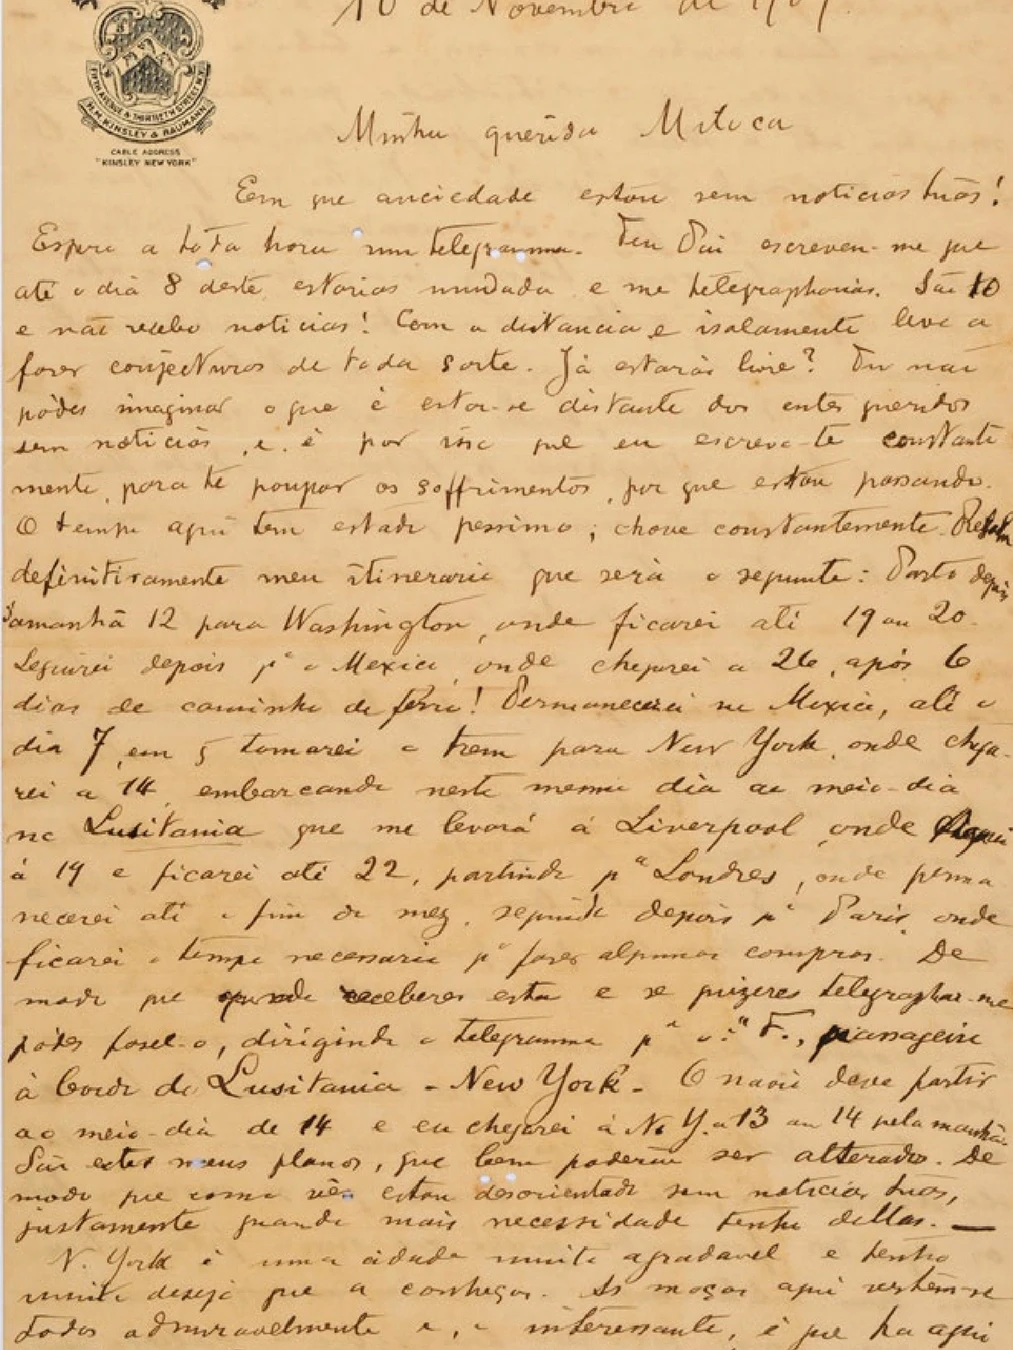 10 de Novembro de 1907.
FIFTH AVENUE & THIRTIETH STREET N.Y.
H.M. KINSLEY & BAUMANN
CABLE ADDRESS
"KINSLEY NEW YORK"
Minha querida Mitoca
Em que anciedade estou sem noticias tuas!
Espero a toda hora um telegramma. Teu Pai escreveu-me que
até o dia 8 deste estarias mudada e me telegrapharias. São 10
e não recebo noticias! Com a distancia e isolamento leva a
fazer conjecturas de toda sorte. Já estarás livre? Tu não
pódes imaginar o que é estar-se distante dos entes queridos
sem noticias, e é por isso que eu escrevo-te constante
mente, para te poupar os soffrimentos, por que estou passando.
O tempo aqui tem estado pessimo; chove constantemente.
definitivamente meu itinerario que será o seguinte: Parto depois
d'amanhã 12 para Washington, onde ficarei até 19 ou 20.
Seguirei depois pª o Mexico, onde chegarei a 26, após 6
dias de caminho de ferro! Permanecerei no Mexico, até o
dia 7, em q tomarei o trem para New York, onde chega-
rei a 14 embarcando neste mesmo dia ao meio-dia
no Lusitania que me levará á Liverpool, onde
á 19 e ficarei até 22, partindo pª Londres, onde perma
necerei até o fim do mez, seguindo depois pª Paris, onde
ficarei o tempo necessario pª fazer algumas compras. De
modo que quando receberes esta e se quizeres telegraphar-me
pódes fasel-o, dirigindo o telegramma pª o: "F., passageiro
á bordo do Lusitania - New York - O navio deve partir
ao meio-dia de 14 e eu chegarei á N. Y. a 13 ou 14 pela manhã.
São estes meus planos, que bem poderão ser alterados. De
modo que como vês estou desorientado sem noticias tuas,
justamente quando mais necessidade tenho dellas. —
N. York é uma cidade muito agradavel e tenho
muito desejo que a conheças. As moças aqui vestem-se
todas admiravelmente e, o interessante, é que ha aqui